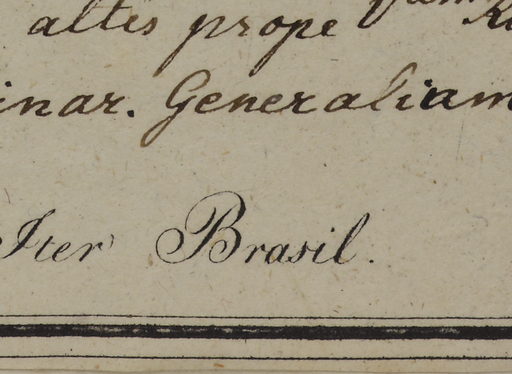 altis prope
inar. Generaliam
Iter Brasil.